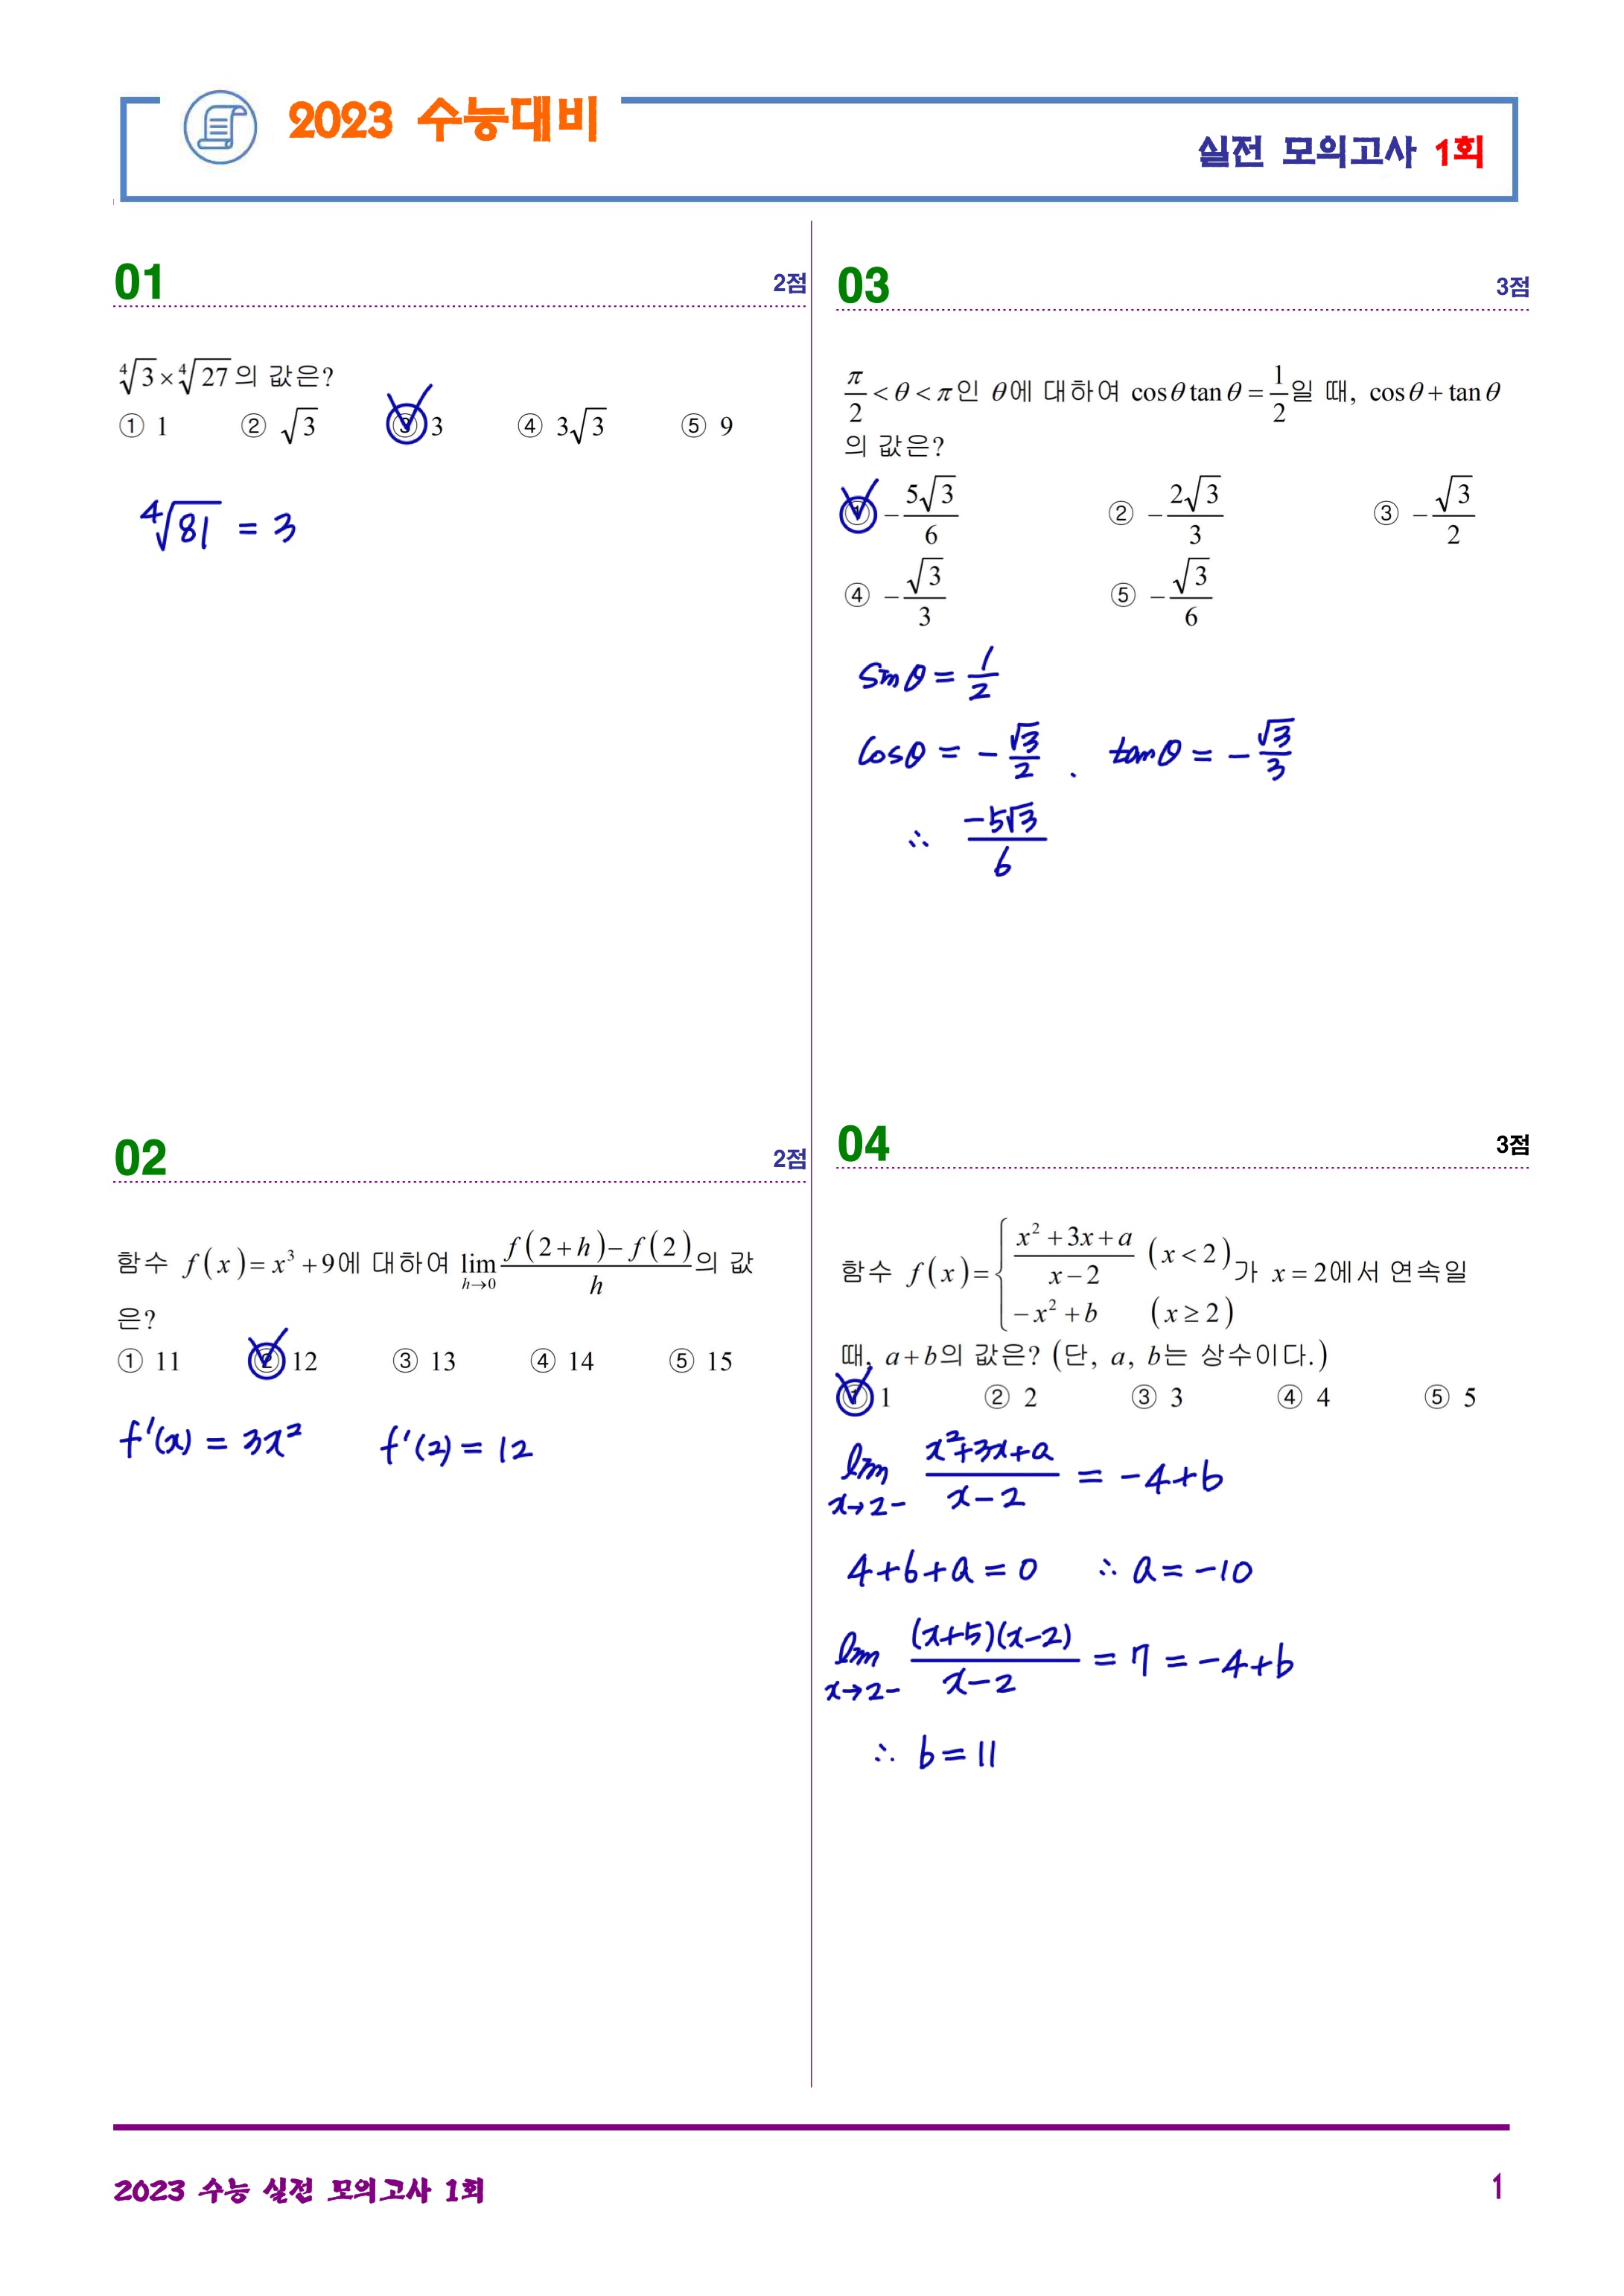 2023 수능대비
실전 모의고사 1회
01 2점
∜3×∜27의 값은?
① 1 ② √3 ③ 3 ④ 3√3 ⑤ 9
∜81 = 3
02 2점
함수 f(x)=x³+9에 대하여 lim_{h→0} (f(2+h)−f(2))/h의 값
은?
① 11 ② 12 ③ 13 ④ 14 ⑤ 15
f'(x) = 3x² f'(2) = 12
03 3점
π/2<θ<π인 θ에 대하여 cosθtanθ=1/2일 때, cosθ+tanθ
의 값은?
① −5√3/6 ② −2√3/3 ③ −√3/2
④ −√3/3 ⑤ −√3/6
sinθ = 1/2
cosθ = −√3/2 . tanθ = −√3/3
∴ −5√3/6
04 3점
함수 f(x)={ (x²+3x+a)/(x−2) (x<2) −x²+b (x≥2) 가 x=2에서 연속일
때, a+b의 값은? (단, a, b는 상수이다.)
① 1 ② 2 ③ 3 ④ 4 ⑤ 5
lim_{x→2−} (x²+3x+a)/(x−2) = −4+b
4+6+a = 0 ∴ a = −10
lim_{x→2−} (x+5)(x−2)/(x−2) = 7 = −4+b
∴ b = 11
2023 수능 실전 모의고사 1회 1